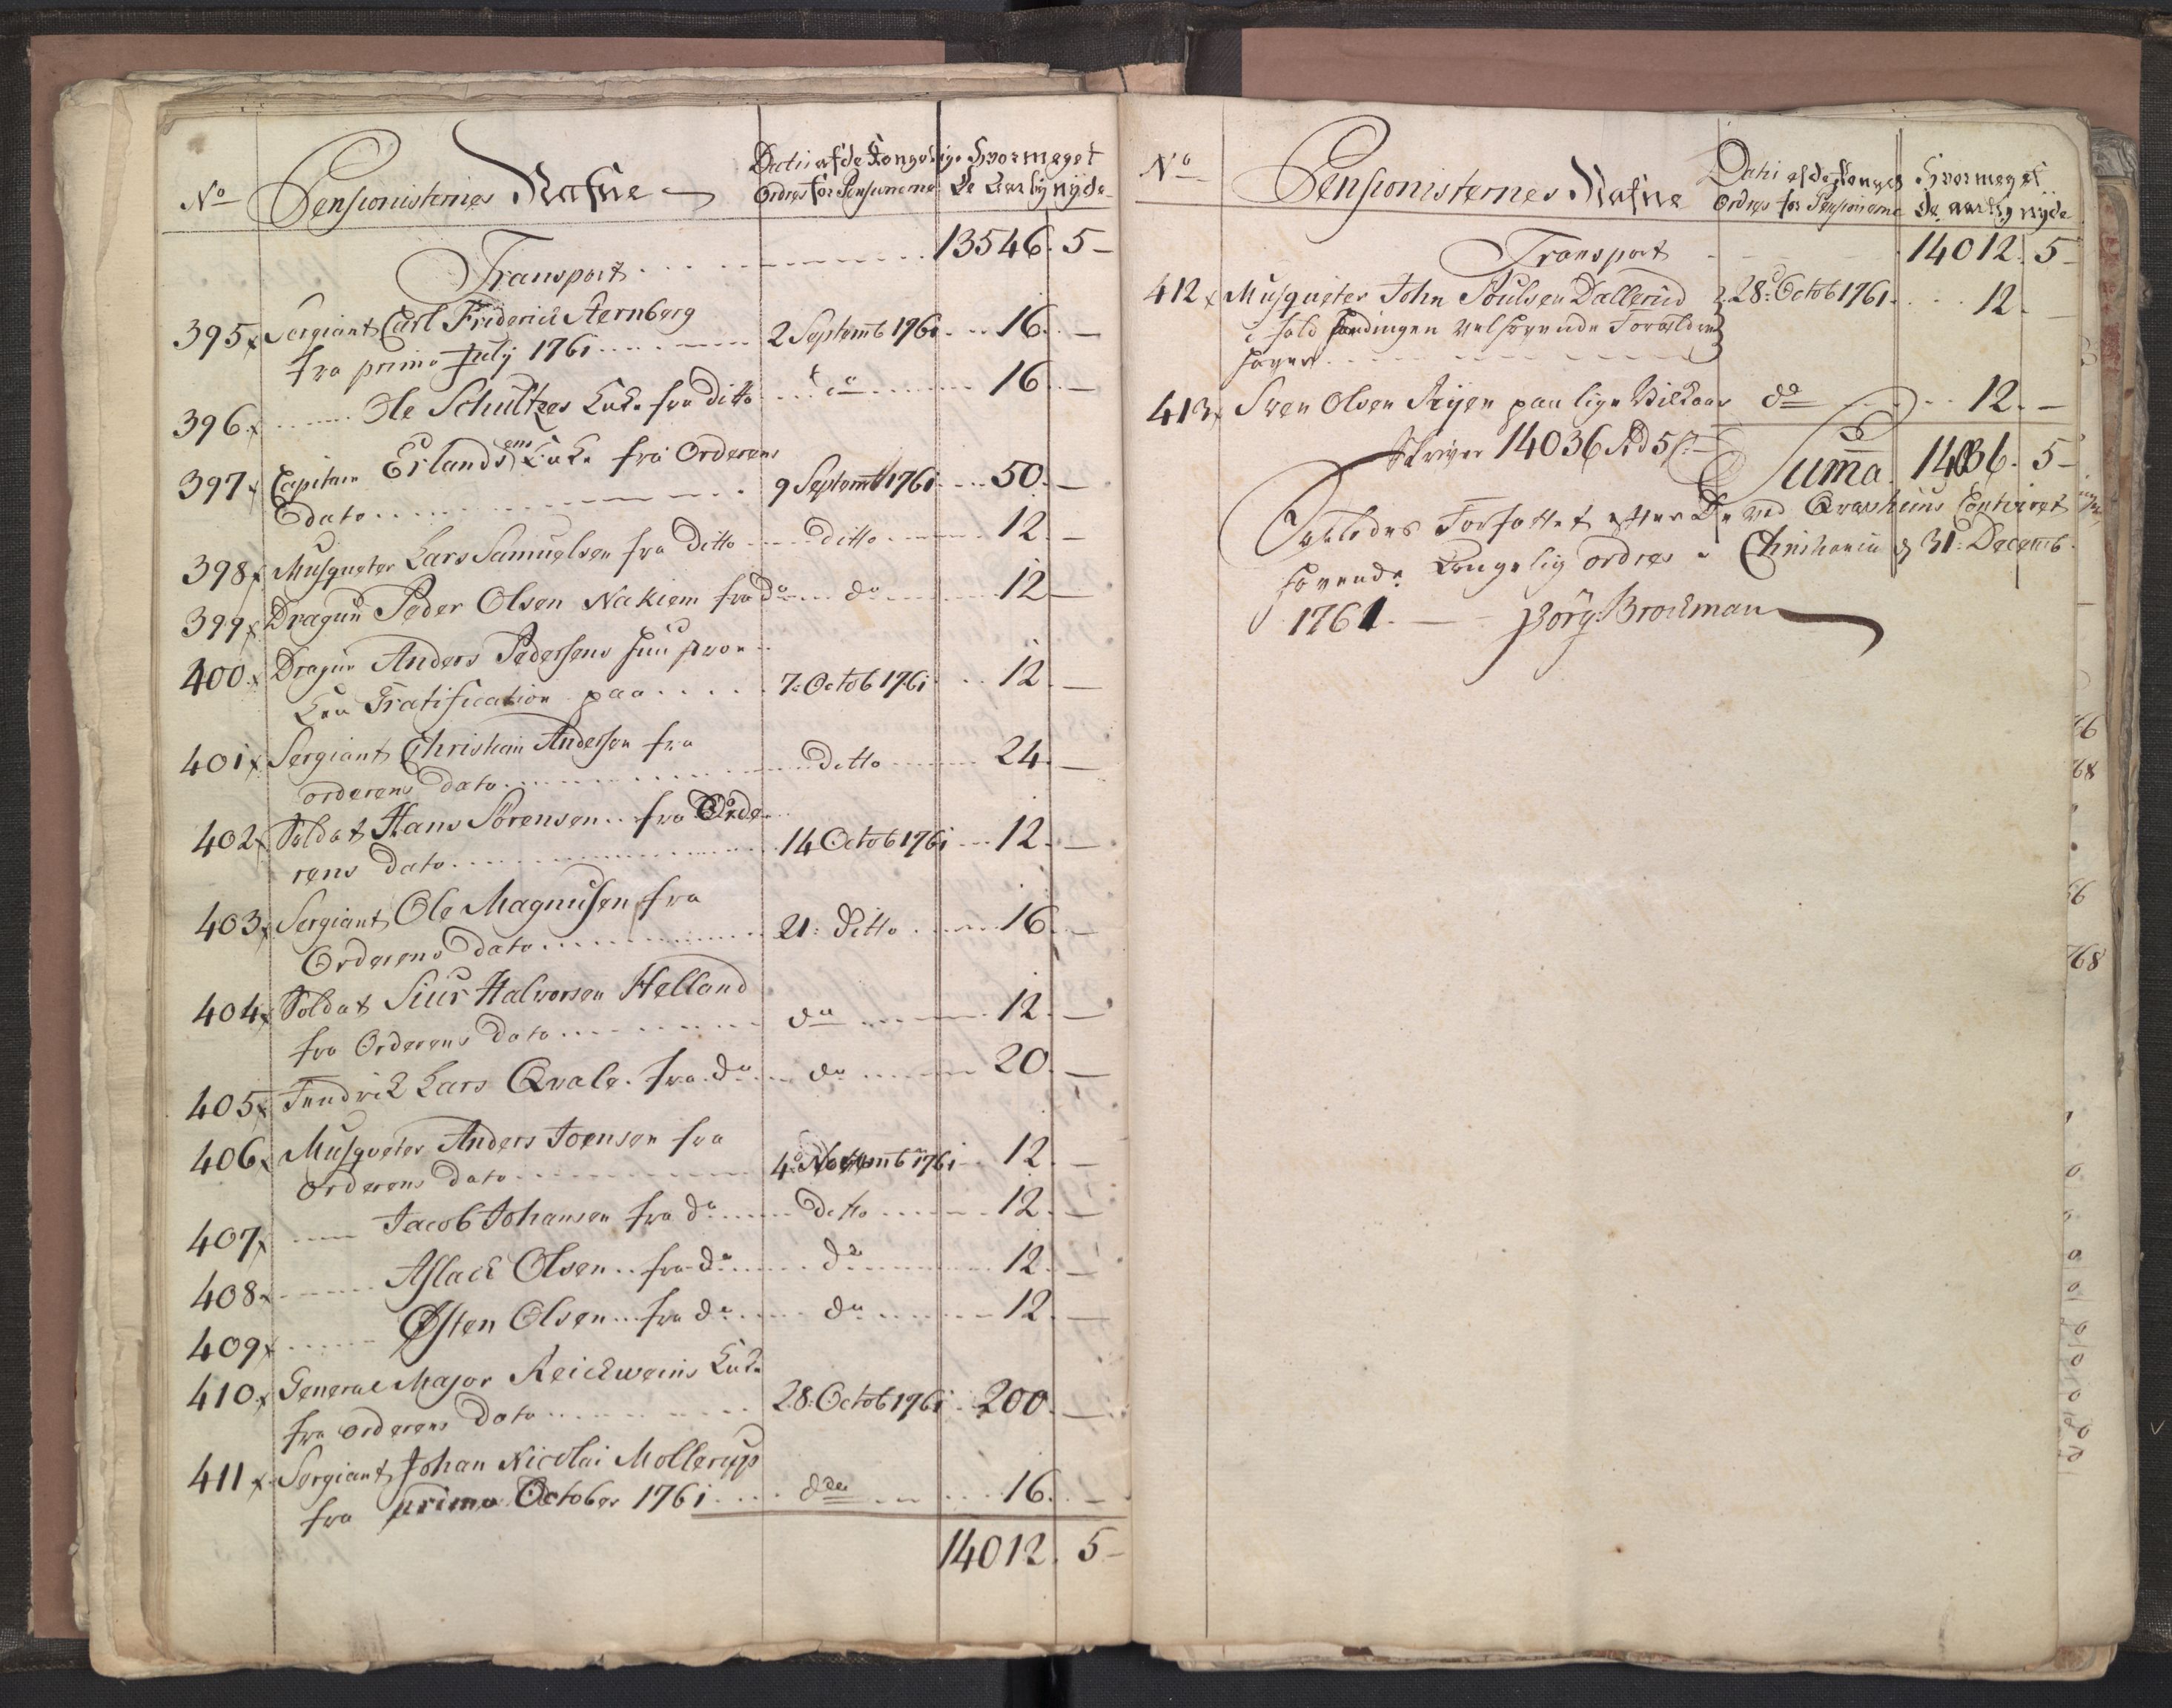 No Pensionisternes Nafne Datis af de Kongelige Hvormeget
Ordres for Pensionerne de Aarlig nÿde
Transport 13546. 5 –
395 Sergiant Carl Friderich Sternberg
fra primo July 1761 2 Septemb 1761 16. –
396 Ole Schultzes Enke fra Ditto do 16. –
397 Capitain Erlandsens Enke fra Orderens
dato 9 Septemb 1761 50. –
398 Musqueter Lars Samuelsen fra Ditto ditto 12. –
399 Dragun Peder Olsen Nakiem fra do do 12 –
400 Dragun Anders Pedersens
Gratification paa 7: Octob 1761 12. –
401 Sergiant Christian Andersen fra
orderens dato Ditto 24. –
402 Soldat Hans Sørensen fra Orde
rens dato 14 Octob 1761 12. –
403 Sergiant Ole Magnusen fra
Orderens dato 21: Ditto 16 –
404 Soldat Siur Halvorsen Helland
fra Orderens Dato do 12. –
405 Fendrik Lars Qvale fra do do 20. –
406 Musqveter Anders Joensen fra
orderens dato 4: Novemb 1761 12. –
407 Jacob Johansen fra do Ditto 12. –
408 Aslack Olsen fra do do 12. –
409 Østen Olsen fra do do 12. –
410 General Major Reickweins Enke
fra orderens Dato 28: Octob 1761 200. –
411 Sergiant Johan Nicolai Mollerup
fra primo October 1761 do 16. –
14012. 5 –
No Pensionisternes Nafne Datis af de Konges Hvormeget
Ordres for Pensionerne de aarlig nyde
Transport 14012. 5 –
412 Musqueter John Poulsen Dallerud 28: Octob 1761 12. –
i fald velhavende Forældre
haver
413 Sven Olsen Ryen paa lige Vilkaar do 12. –
Skriver 14036 Rd 5 s Suma 14036. 5 –
Saaledes Forfattet efter De ved Contoiret
havende Kongelig ordres Christiania d 31: Decemb.
1761. – Børg: Brockman